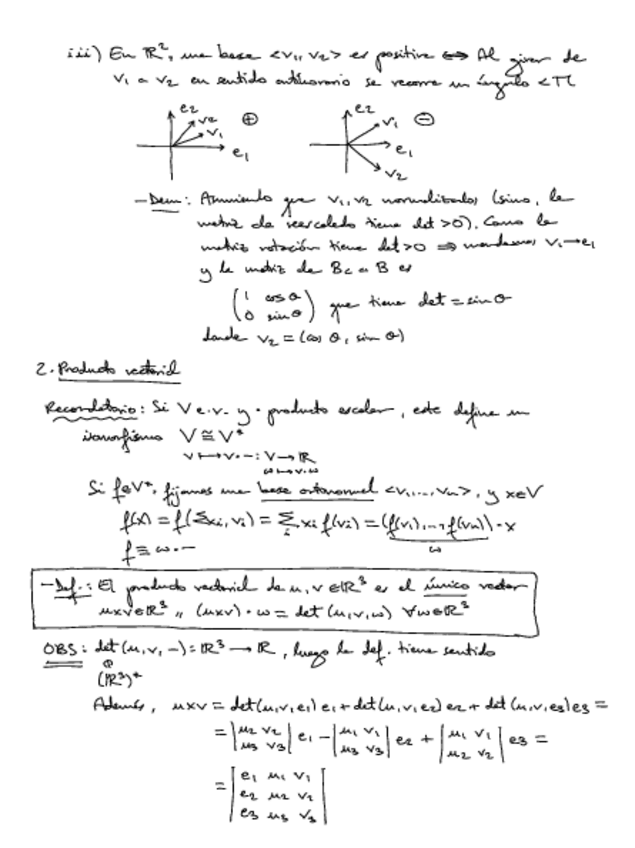 iii) En ℝ², una base <v₁, v₂> es positiva ⟺ Al girar de
v₁ a v₂ en sentido antihorario se recorre un ángulo < π
e₂ v₂ v₁ e₁ ⊕ e₂ v₁ e₁ v₂ ⊖
- Dem: Asumiendo que v₁, v₂ normalizados (sino, la
matriz de reescalado tiene det > 0). Como la
matriz rotación tiene det > 0 ⟹ mandamos v₁ → e₁
y la matriz de Bc a B es
( 1 cos θ ) que tiene det = sin θ
( 0 sin θ )
donde v₂ = (cos θ, sin θ)
2. Producto vectorial
Recordatorio: Si V e.v. y · producto escalar, este define un
isomorfismo V ≅ V*
v ↦ v·- : V → ℝ
ω ↦ v·ω
Si f∈V*, fijamos una base ortonormal <v₁, ..., vₙ>, y x∈V
f(x) = f(Σxᵢ, vᵢ) = Σᵢ xᵢ f(vᵢ) = (f(v₁), ..., f(vₙ)) · x
f ≡ ω·- ω
- Def.: El producto vectorial de u, v ∈ℝ³ es el único vector
u×v∈ℝ³ " (u×v)·ω = det (u, v, ω) ∀ω∈ℝ³
OBS: det (u, v, -) : ℝ³ → ℝ, luego la def. tiene sentido
(ℝ³)*
Además, u×v = det(u, v, e₁) e₁ + det(u, v, e₂) e₂ + det (u, v, e₃) e₃ =
= |u₂ v₂| e₁ - |u₁ v₁| e₂ + |u₁ v₁| e₃ =
|u₃ v₃| |u₃ v₃| |u₂ v₂|
= |e₁ u₁ v₁|
|e₂ u₂ v₂|
|e₃ u₃ v₃|